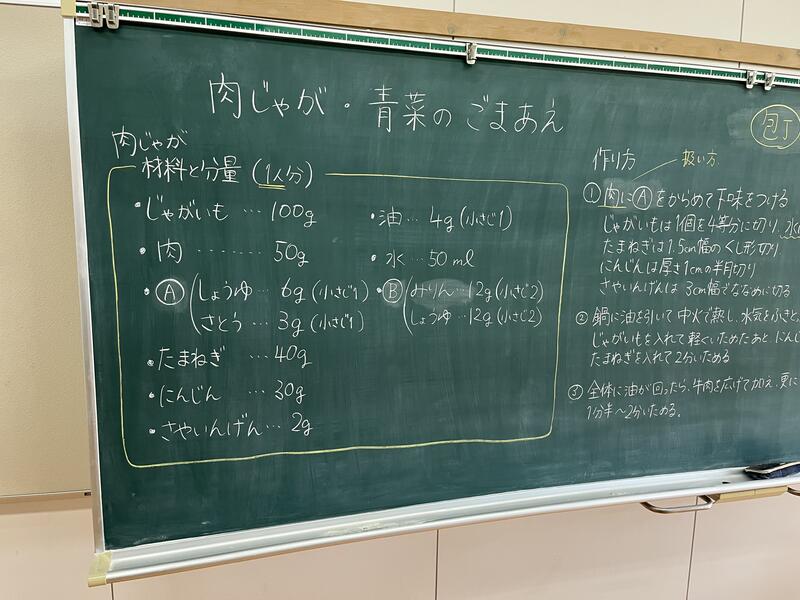 肉じゃが・青菜のごまあえ
肉じゃが
材料と分量（1人分）
・じゃがいも … 100g
・肉 ……… 50g
・Ⓐ しょうゆ … 6g（小さじ1）
さとう … 3g（小さじ1）
・たまねぎ … 40g
・にんじん … 30g
・さやいんげん … 2g
・油 … 4g（小さじ1）
・水 … 50ml
・Ⓑ みりん … 12g（小さじ2）
しょうゆ … 12g（小さじ2）
包丁
作り方
扱い方
① 肉にⒶをからめて下味をつける
じゃがいもは1個を4等分に切り、水に
たまねぎは1.5cm幅のくし形切り
にんじんは厚さ1cmの半月切り
さやいんげんは3cm幅でななめに切る
② 鍋に油を引いて中火で熱し、水気をふきと
じゃがいもを入れて軽くいためたあと、にんじ
たまねぎを入れて2分いためる
③ 全体に油が回ったら、牛肉を広げて加え、更に
1分半〜2分いためる。